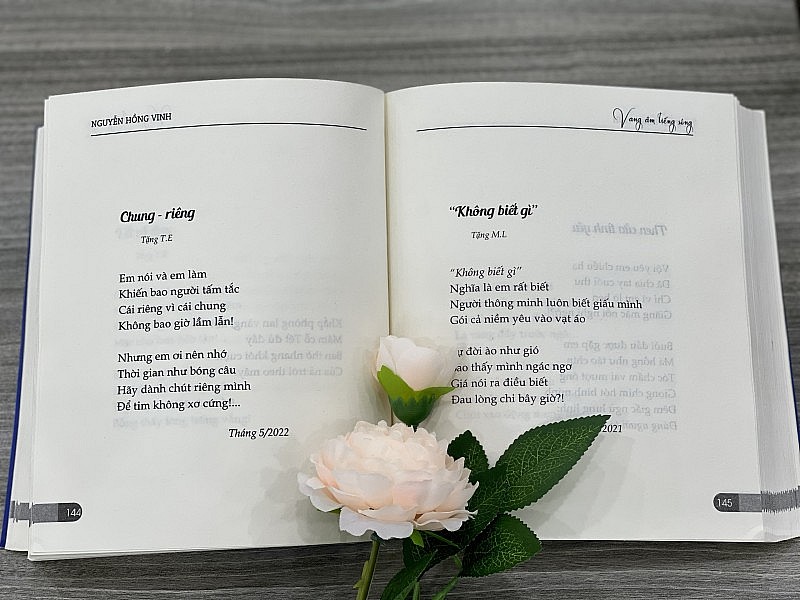 NGUYỄN HỒNG VINH
Chung - riêng
Tặng T.E
Em nói và em làm
Khiến bao người tấm tắc
Cái riêng vì cái chung
Không bao giờ lầm lẫn!
Nhưng em ơi nên nhớ
Thời gian như bóng câu
Hãy dành chút riêng mình
Để tim không xơ cứng!...
Tháng 5/2022
144
Vang âm tiếng sóng
"Không biết gì"
Tặng M.L
"Không biết gì"
Nghĩa là em rất biết
Người thông minh luôn biết giấu mình
Gói cả niềm yêu vào vạt áo
đời ào như gió
thấy mình ngác ngơ
Giá nói ra điều biết
Đau lòng chi bây giờ?!
2021
145